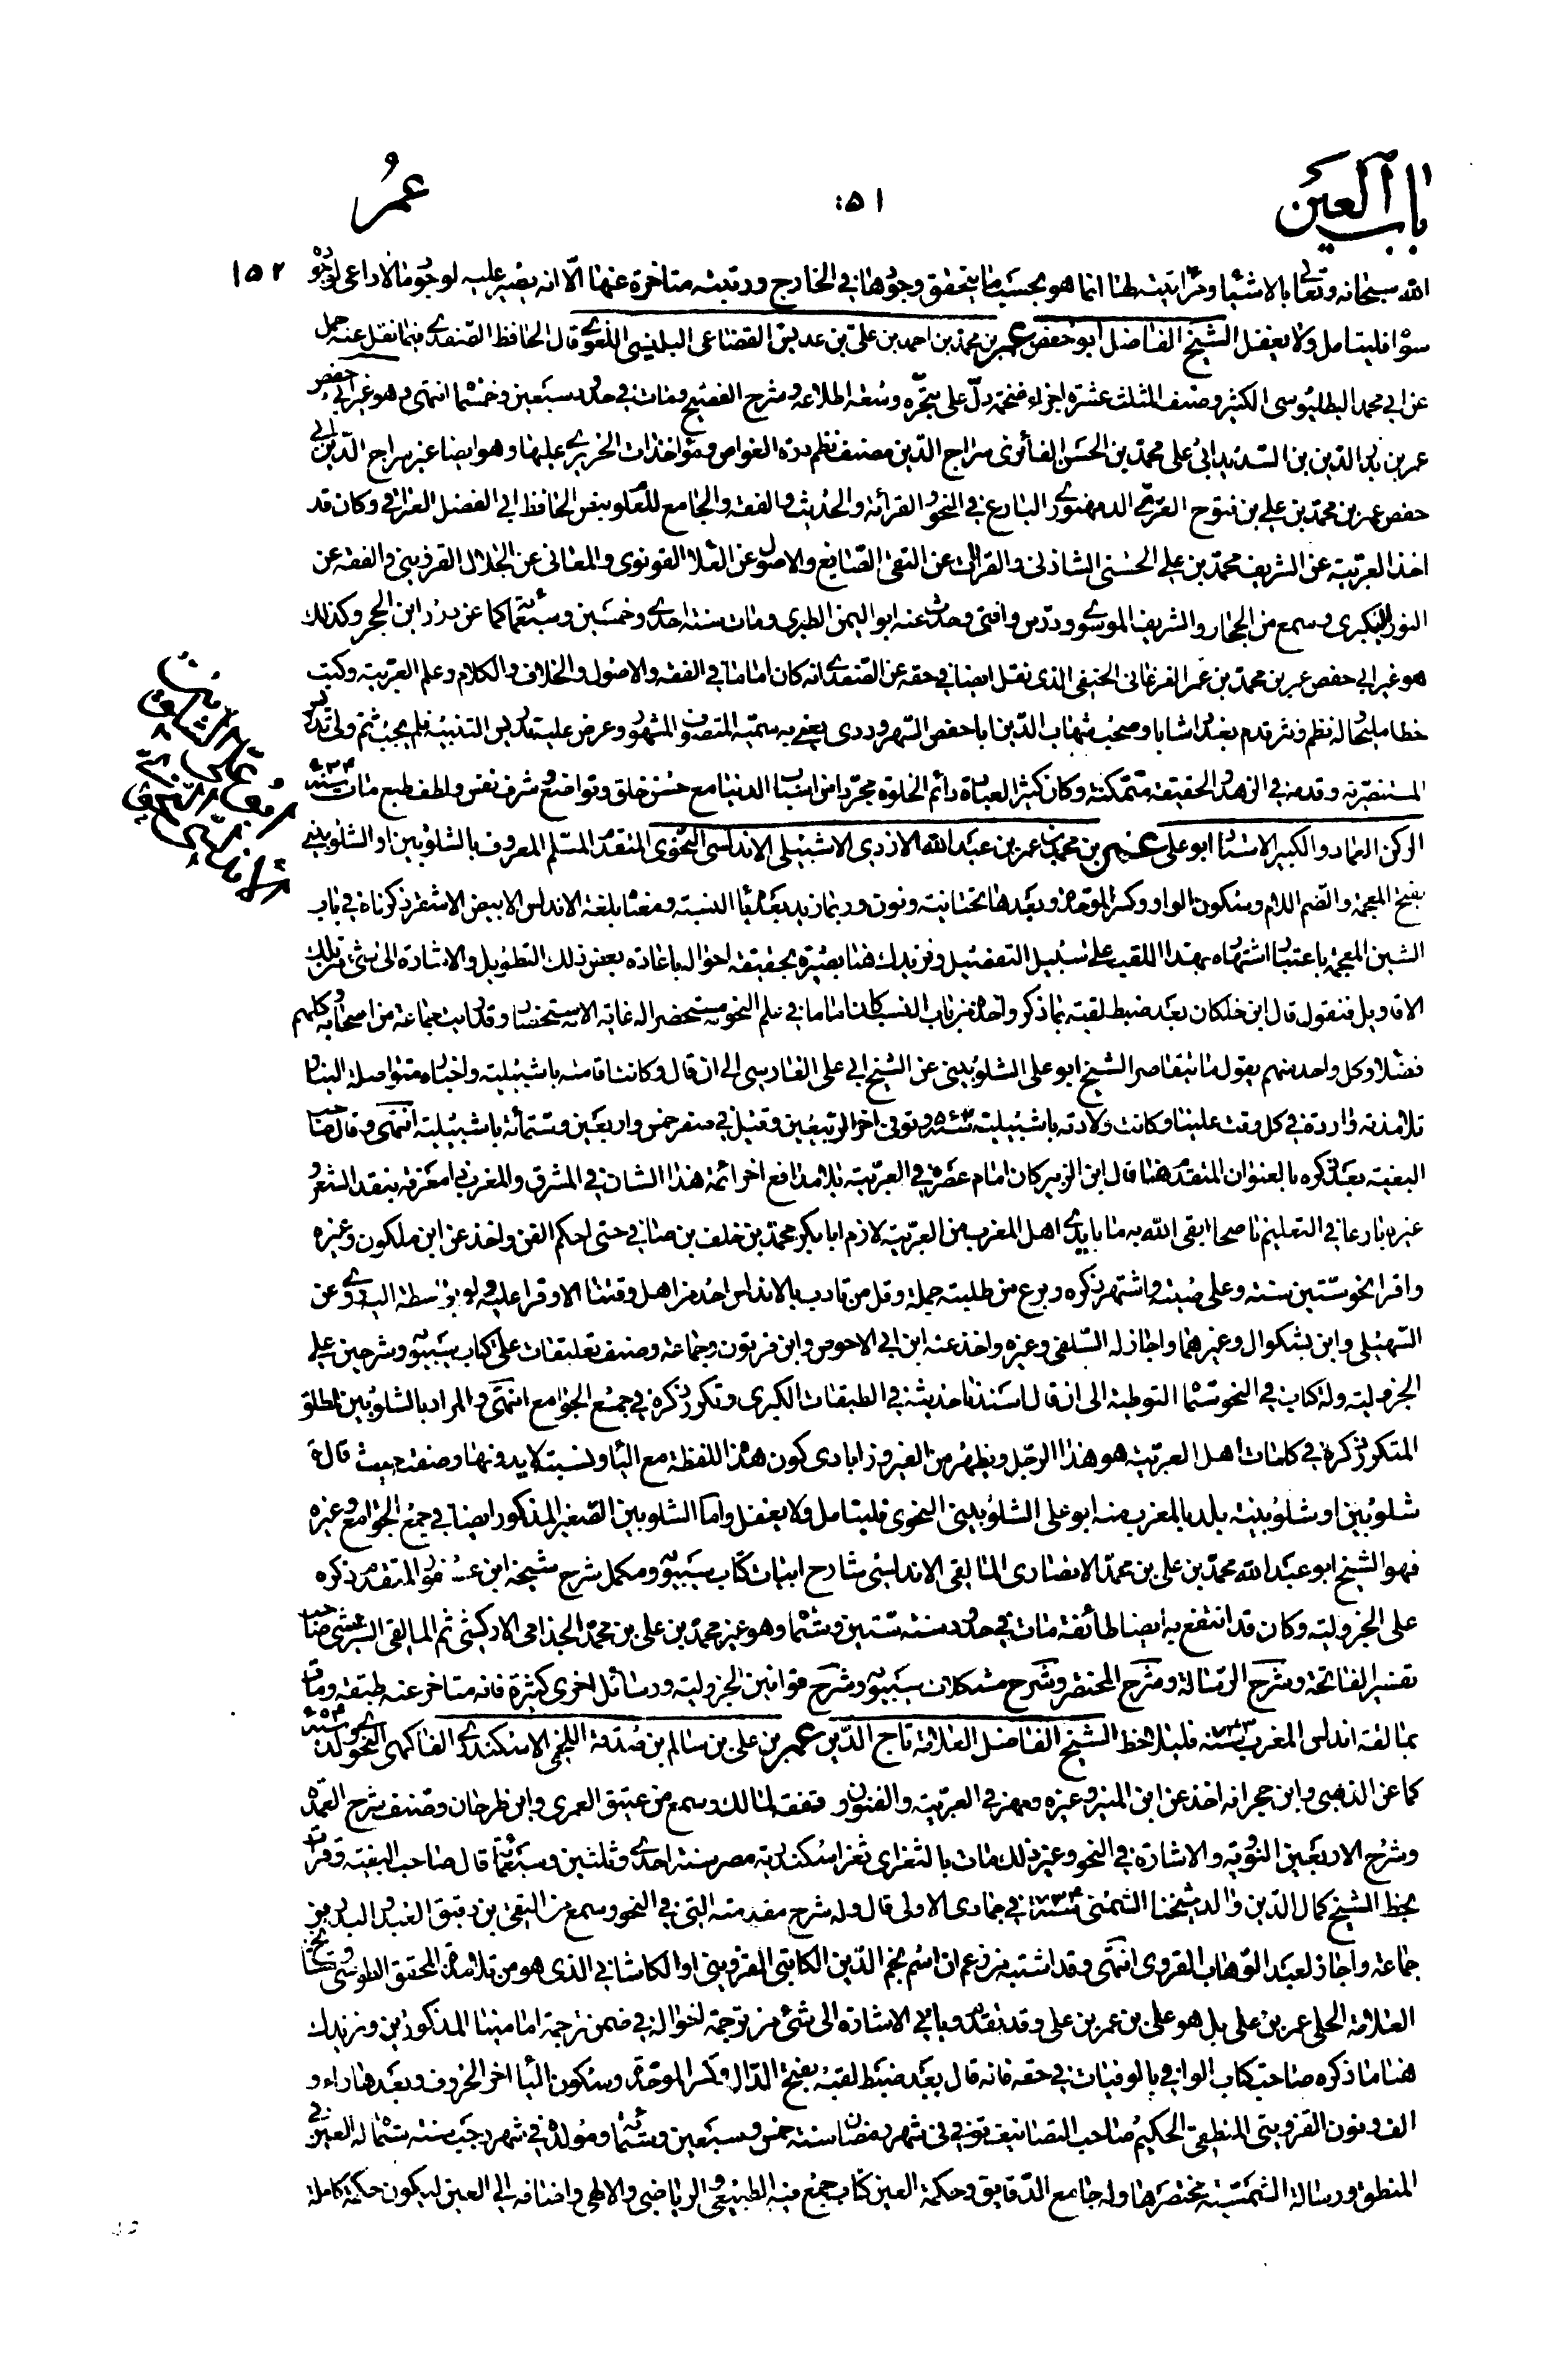 باب العين
۵۱:
عمر
۱۵۲
الله سبحانه وتعالى بالاشياء ومرايتيته لها انما هو بحسب ما يتحقق وجودها في الخارج ورتبته متاخرة عنها الا انه يصير عليه لوجود ما لاداعي لوجوده
سواء فليتامل ولا يغفل الشيخ الفاضل ابو حفص عمر بن محمد بن احمد بن علي بن عديس القضاعي البلنسي اللغوي قال الحافظ الصفدي فيما نقل عنه حمل
عن ابي محمد البطليوسي الكثير وصنف المثلث عشرة اجزاء ضخمة دل على تبحره وسعة اطلاعه وشرح الفصيح ومات في حدود سبعين وخمسمائة انتهى وهو غير ابي حفص
عمر بن بدر الدين بن السديد ابي علي محمد بن الحسن الفائزي سراج الدين مصنف نظم درة الغواص ومؤاخذات الحريري عليها وهو ايضا غير سراج الدين ابي
حفص عمر بن محمد بن علي بن فتوح الغزي الدمنهوري البارع في النحو والقرائة والحديث والفقه والجامع للعلوم بنص الحافظ ابي الفضل العراقي وكان قد
اخذ العربية عن الشريف محمد بن علي الحسني الشاذلي والقراآت عن التقي الصايغ والاصول عن العلاء القونوي والمعاني عن الجلال القزويني والفقه عن
النور البكري وسمع من الحجار والشريف الموسوي ودرس وافتى وحدث عنه ابو اليمن الطبري ومات سنة احدى وخمسين وسبعمائة كما عن درر ابن الحجر وكذلك
هو غير ابي حفص عمر بن محمد بن عمر الفرغاني الحنفي الذي نقل ايضا في حقه عن الصفدي انه كان اماما في الفقه والاصول والخلاف والكلام وعلم العربية وكتب
خطا مليحا له نظم ونثر قدم بغداد شابا وصحب شهاب الدين ابا حفص السهروردي يعني به سميه المتصوف المشهور وعرض عليه تدريس التنبيه فلم يجب ثم ولى تدريس
المستنصرية وقدمه في الزهد والحقيقة متمكنة وكان كثير العبادة دائم الخلوة مجردا من اسباب الدنيا مع حسن خلق وتواضع وشرف نفس ولطف طبع مات سنة
الركن العماد والكبير الاستاد ابو علي عمر بن محمد بن عمر بن عبد الله الازدي الاشبيلي الاندلسي النحوي المتقدم المسلم المعروف بالشلوبين او الشلوبيني
بفتح المعجمة والضم اللام وسكون الواو وكسر الموحدة وبعدها تحتانية ونون وربما زيد بعدها ياء النسبة ومعناه بلغة الاندلس الابيض الاشقر ذكرناه في باب
الشين المعجمة باعتبار اشتهاره بهذا اللقب على سبيل التفصيل ونزيدك هنا بصيرة بحقيقة احواله باعادة بعض ذلك التطويل والاشارة الى شئ من تلك
الاقاويل فنقول قال ابن خلكان بعد ضبط لقبه بما ذكر واخذه من باب النسب كان اماما في علم النحو مستحضرا له غاية الاستحضار وقد رايت جماعة من اصحابه وكلهم
فضلاء وكل واحد منهم يقول ما يتقاصر الشيخ ابو علي الشلوبيني عن الشيخ ابي علي الفارسي الى ان قال وكانت اقامته باشبيلية واخباره متواصلة الينا
تلامذته واردة في كل وقت علينا وكانت ولادته باشبيلية سنة ۵۶۲ وتوفي اخر الربيعين وقيل في صفر خمس واربعين وستمائة باشبيلية انتهى وقال صاحب
البغية بعد ذكره بالعنوان المتقدم هنا قال ابن الزبير كان امام عصره في العربية بلا مدافع اخر ائمة هذا الشان في المشرق والمغرب ذا معرفة بنقد الشعر
غيره بارعا في التعليم ناصحا ابقى الله به ما بايدي اهل المغرب من العربية لازم ابا بكر محمد بن خلف بن صاف حتى احكم الفن واخذ عن ابن ملكون وغيره
واقرا نحو ستين سنة وعلى صيته واشتهر ذكره وبرع من طلبته جملة وقل من تادب بالاندلس احد من اهل وقتنا الا وقرا عليه ولو بواسطة البدوي عن
السهيلي وابن بشكوال وغيرهما واجاز له السلفي وغيره واخذ عنه ابن ابي الاحوص وابن فرتون وجماعة وصنف تعليقات على كتاب سيبويه وشرحين على
الجزولية وله كتاب في النحو سماه التوطئة الى ان قال اسندنا حديثه في الطبقات الكبرى وتكرر ذكره في جمع الجوامع انتهى والمراد بالشلوبين المطلق
المتكرر ذكره في كلمات اهل العربية هو هذا الرجل ويظهر من الفيروزابادي كون هذه اللفظة مع الياء ولنسبت لا بدونها وصفه حيث قال
شلوبين او شلوبينية بلد بالمغرب منه ابو علي الشلوبيني النحوي فليتامل ولا يغفل واما الشلوبين الصغير المذكور ايضا في جمع الجوامع وغيره
فهو الشيخ ابو عبد الله محمد بن علي بن محمد الانصاري المالقي الاندلسي شارح ابيات كتاب سيبويه ومكمل شرح شيخه ابن عصفور المتقدم ذكره
على الجزولية وكان قد انتفع به ايضا طائفة مات في حدود سنة ستين وستمائة وهو غير محمد بن علي بن محمد الجذامي الاركشي ثم المالقي الشريشي صاحب
تفسير الفاتحة وشرح الرسالة وشرح المختصر وشرح مشكلات سيبويه وشرح قوانين الجزولية ورسائل اخرى كثيرة فانه متاخر عنه طبقة ومات
بمالقة اندلس المغرب سنة ۷۲۳ فليلاحظ الشيخ الفاضل العلامة تاج الدين عمر بن علي بن سالم بن صدقة اللخمي الاسكندري الفاكهي النحوي ولد سنة ۶۵۴
كما عن الذهبي وابن حجر انه اخذ عن ابن المنير وغيره ومهر في العربية والفنون وتفقه لمالك وسمع من عتيق العمري وابن طرخان وصنف شرح العمدة
وشرح الاربعين النووية والاشارة في النحو وغير ذلك مات بالثغر اي ثغر اسكندرية مصر سنة احدى وثلثين وسبعمائة قال صاحب البغية وقرات
بخط الشيخ كمال الدين والد شيخنا الشمني سنة ۷۳۴ في جمادى الاولى قال وله شرح مقدمته التي في النحو وسمع من التقي بن دقيق العيد والبدر بن
جماعة واجاز لعبد الوهاب القروي انتهى وقد اشتبه من زعم ان اسم نجم الدين الكاتبي القزويني او الكاشاني الذي هو من تلامذة المحقق الطوسي ومشايخ
العلامة الحلي عمر بن علي بل هو علي بن عمر بن علي وقد تقدم وياتي الاشارة الى شئ من ترجمة احواله في ضمن ترجمة امامينا المذكورين ونزيدك
هنا ما ذكره صاحب كتاب الوافي بالوفيات في حقه فانه قال بعد ضبط لقبه بفتح الدال وكسر الموحدة وسكون الياء اخر الحروف وبعدها راء و
الف ونون القزويني المنطقي الحكيم صاحب التصانيف توفي في شهر رمضان سنة خمس وسبعين وستمائة ومولده في شهر رجب سنة ستمائة له العين في
المنطق ورسالة الشمسية مختصرها وله جامع الدقايق وحكمة العين كتاب جمع فيه الطبيعي والرياضي والالهي واضافه الى العين ليكون حكمة كاملة